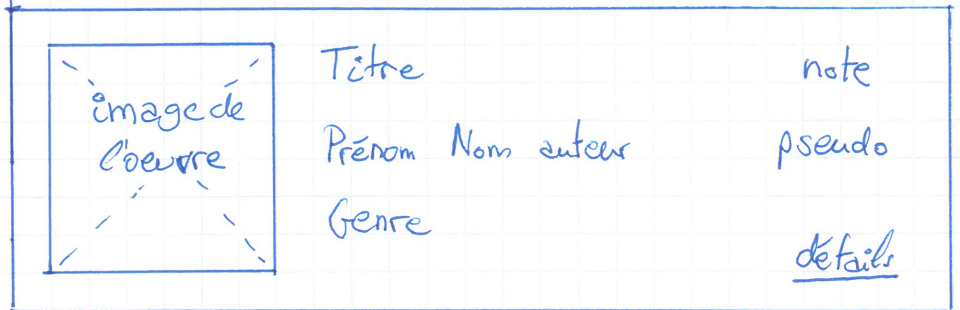 image de
l'oeuvre
Titre
Prénom Nom auteur
Genre
note
pseudo
détails